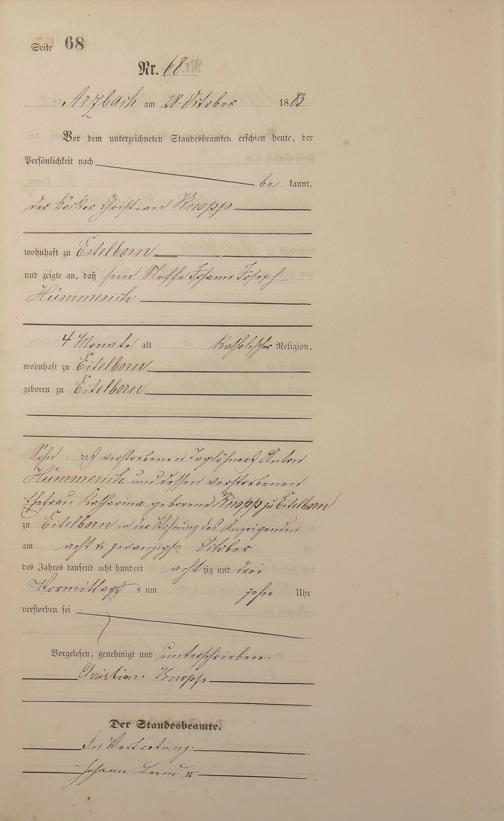 Seite 68
Nr. 68
Arzbach am 28. October 1883
Vor dem unterzeichneten Standesbeamten erschien heute, der
Persönlichkeit nach
be kannt,
der Bäcker Christian Knopp
wohnhaft zu Eitelborn
und zeigte an, daß sein Neffe Johann Joseph
Hümmerich
4 Monate alt katholischer Religion,
wohnhaft zu Eitelborn
geboren zu Eitelborn
Sohn des verstorbenen Taglöhners Anton
Hümmerich und dessen verstorbenen
Ehefrau Katharina geborene Knopp zu Eitelborn
zu Eitelborn in der Wohnung des Anzeigenden
am acht & zwanzigsten October
des Jahres tausend acht hundert achtzig und drei
Vormittags um zehn Uhr
verstorben sei
Vorgelesen, genehmigt und unterschrieben.
Christian Knopp
Der Standesbeamte.
In Vertretung:
Johann II